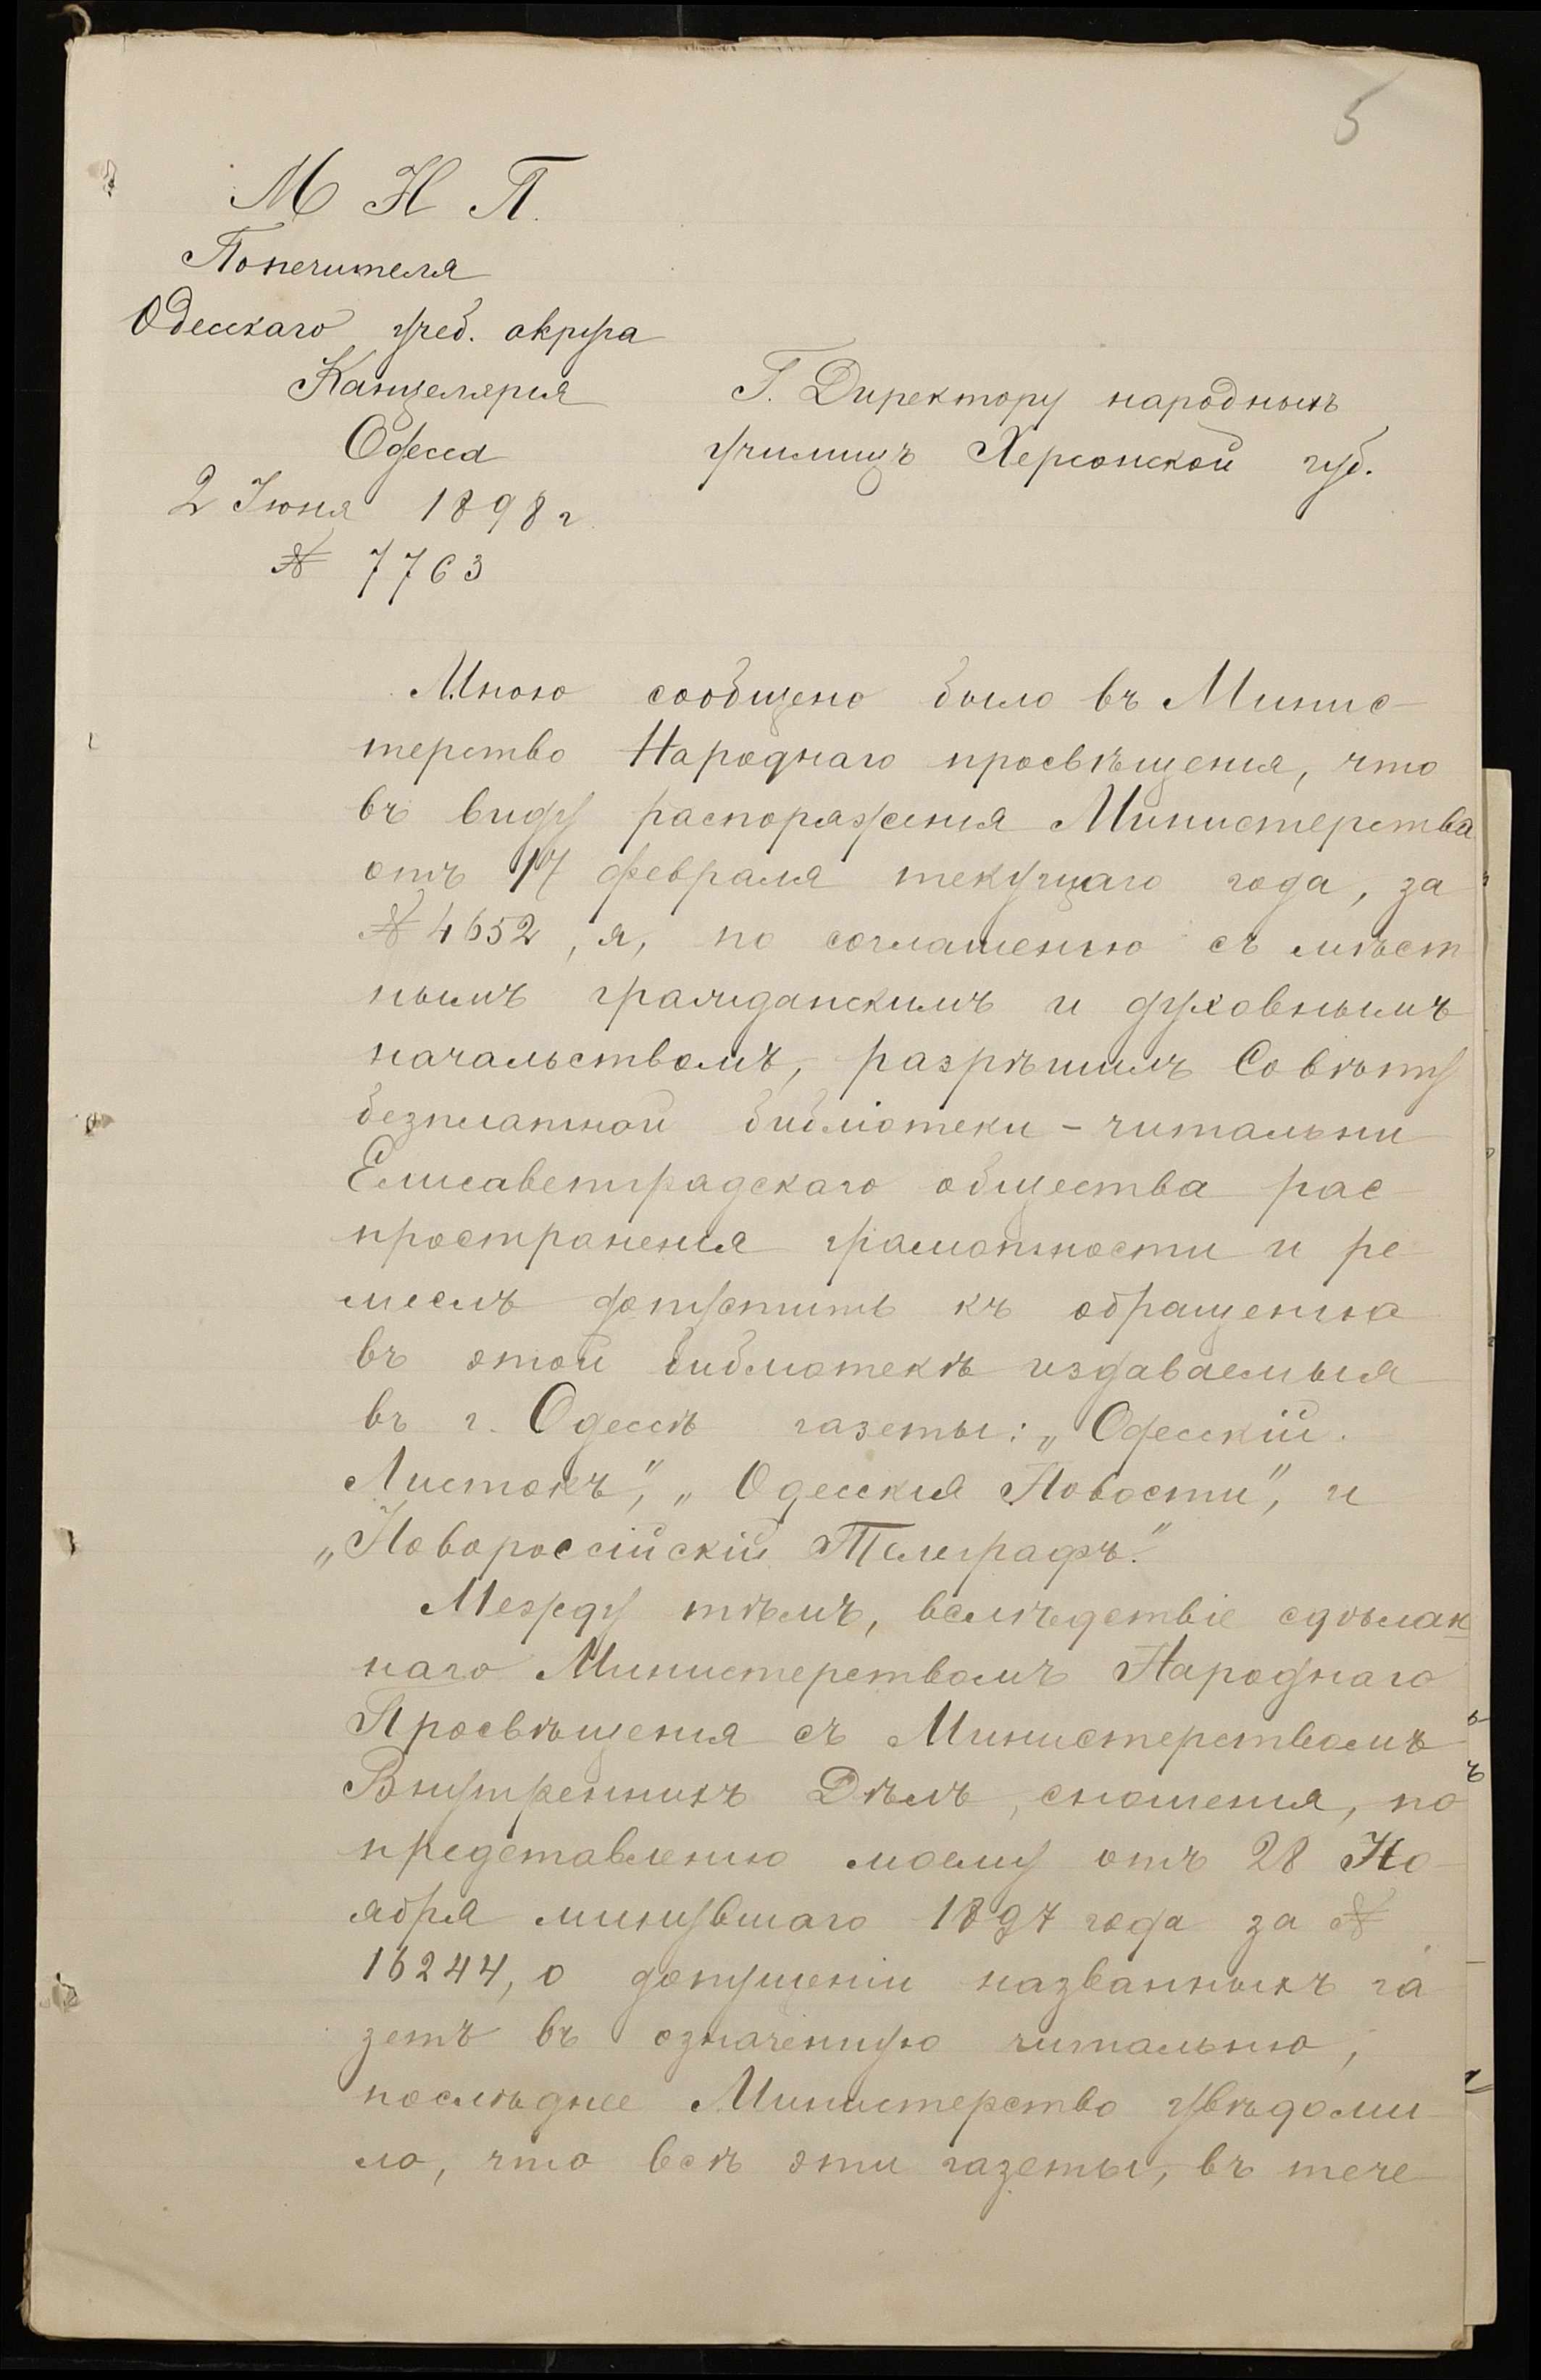 5
М Н П.
Попечителя
Одесскаго учеб. округа
Канцелярія
Одесса
2 Іюня 1898 г.
№ 7763
Г. Директору народныхъ
училищъ Херсонской губ.
Мною сообщено было въ Минис-
терство Народнаго просвѣщенія, что
въ виду распоряженія Министерства
отъ 17 февраля текущаго года, за
№ 4652, я, по соглашенію съ мѣст
нымъ гражданскимъ и духовнымъ
начальствомъ, разрѣшилъ Совѣту
безплатной библіотеки - читальни
Елисаветградскаго общества рас
пространенія грамотности и ре
меслъ допустить къ обращенію
въ этой библіотекѣ издаваемыя
въ г. Одессѣ газеты: „Одесскій
Листокъ", „Одесскія Новости", и
„Новороссійскій Телеграфъ."
Между тѣмъ, вслѣдствіе сдѣлан
наго Министерствомъ Народнаго
Просвѣщенія съ Министерствомъ
Внутреннихъ Дѣлъ, сношенія, по
представленію моему отъ 28 Но
ября минувшаго 1897 года за №
16244, о допущеніи названныхъ га
зетъ въ означенную читальню,
послѣднее Министерство увѣдоми
ло, что всѣ эти газеты, въ тече